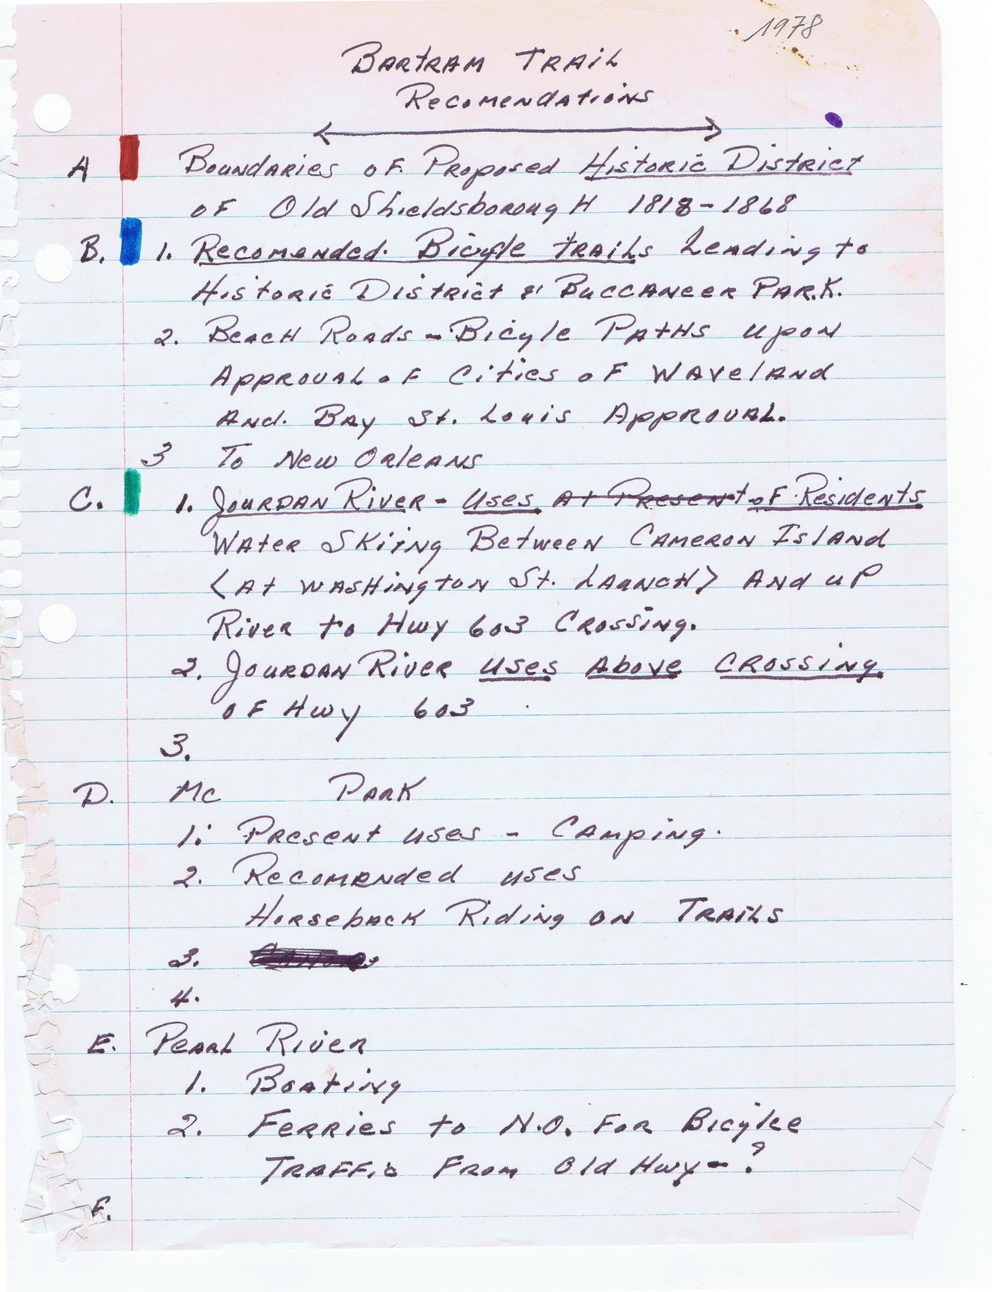 1978
Bartram Trail
Recomendations
A Boundaries of Proposed Historic District
of Old Shieldsborough 1818-1868
B. 1. Recomended Bicycle trails Leading to
Historic District & Buccaneer Park.
2. Beach Roads - Bicyle Paths upon
Approval of Cities of Waveland
And. Bay St. Louis Approval.
3 To New Orleans
C. 1. Jourdan River - Uses At Present of Residents
Water Skiing Between Cameron Island
(At Washington St. Launch) And up
River to Hwy 603 Crossing.
2. Jourdan River Uses Above Crossing
of Hwy 603
3.
D. Mc Park
1. Present uses - Camping.
2. Recomended uses
Horseback Riding on Trails
3.
4.
E. Pearl River
1. Boating
2. Ferries to N.O. For Bicylce
Traffic From Old Hwy - ?
F.